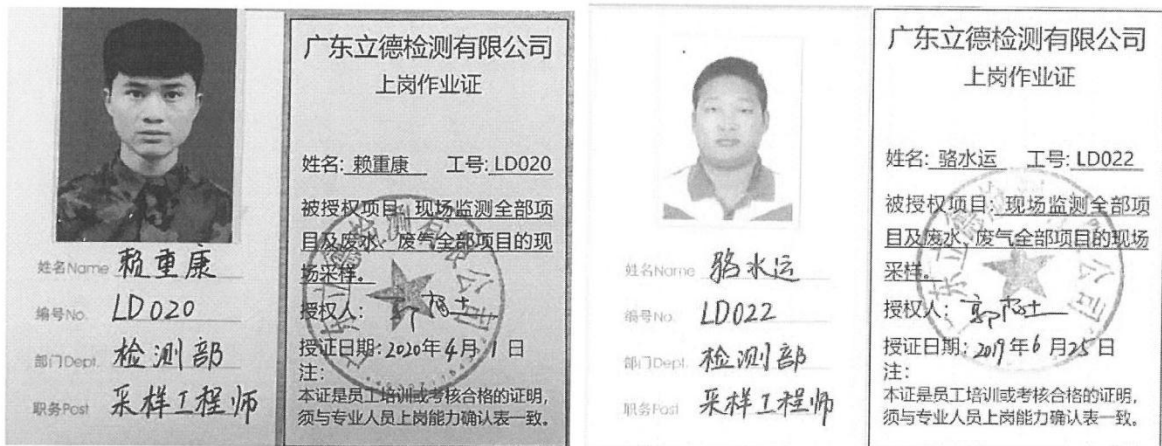 姓名Name 赖重康
编号No. LD020
部门Dept. 检测部
职务Post 采样工程师
广东立德检测有限公司
上岗作业证
姓名: 赖重康 工号: LD020
被授权项目: 现场监测全部项
目及废水、废气全部项目的现
场采样。
授权人:
授证日期: 2020年4月1日
注:
本证是员工培训或考核合格的证明,
须与专业人员上岗能力确认表一致。
姓名Name 骆水运
编号No. LD022
部门Dept. 检测部
职务Post 采样工程师
广东立德检测有限公司
上岗作业证
姓名: 骆水运 工号: LD022
被授权项目: 现场监测全部项
目及废水、废气全部项目的现场
采样。
授权人:
授证日期: 2019年6月25日
注:
本证是员工培训或考核合格的证明,
须与专业人员上岗能力确认表一致。